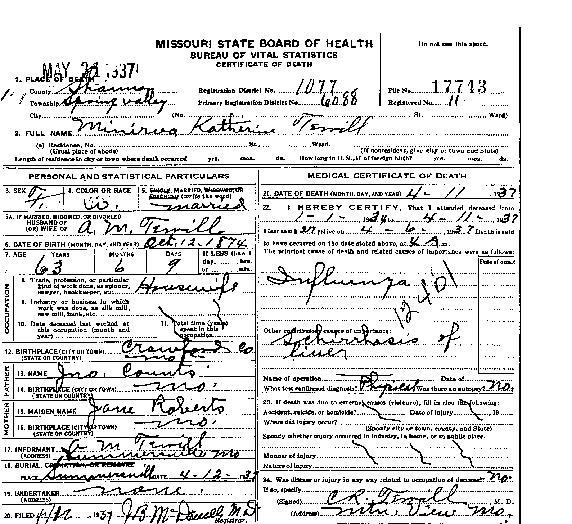 MISSOURI STATE BOARD OF HEALTH
BUREAU OF VITAL STATISTICS
CERTIFICATE OF DEATH
Do not use this space.
1. PLACE OF DEATH
County Shannon
Registration District No. 1077
File No. 17743
Township Spring Valley
Primary Registration District No. 6088
Registered No. 11
City (No. St. Ward)
2. FULL NAME Minirva Katherine Terrill
(a) Residence, No. St. Ward.
(Usual place of abode) (If nonresident, give city or town and state)
Length of residence in city or town where death occurred yrs. mos. ds. How long in U.S., if of foreign birth? yrs. mos. ds.
PERSONAL AND STATISTICAL PARTICULARS
3. SEX F. 4. COLOR OR RACE W. 5. SINGLE, MARRIED, WIDOWED, OR DIVORCED (write the word) married
5A. IF MARRIED, WIDOWED, OR DIVORCED
HUSBAND OF
(OR) WIFE OF A. M. Terrill
6. DATE OF BIRTH (MONTH, DAY, AND YEAR) Oct. 12-1874
7. AGE YEARS MONTHS DAYS If LESS than 1
63 6 9 day, hrs.
or min.
OCCUPATION
8. Trade, profession, or particular
kind of work done, as spinner,
sawyer, bookkeeper, etc. Housewife
9. Industry or business in which
work was done, as silk mill,
saw mill, bank, etc.
10. Date deceased last worked at
this occupation (month and
year)
11. Total time (years)
spent in this
occupation
12. BIRTHPLACE (CITY OR TOWN) Crawford Co
(STATE OR COUNTRY) mo.
FATHER
13. NAME Jno. Counts
14. BIRTHPLACE (CITY OR TOWN)
(STATE OR COUNTRY) mo.
MOTHER
15. MAIDEN NAME Jane Roberts
16. BIRTHPLACE (CITY OR TOWN)
(STATE OR COUNTRY) mo.
17. INFORMANT A M Terrill
(ADDRESS) Summersville Mo
18. BURIAL, CREMATION, OR REMOVAL
PLACE Summersville DATE 4-12-37
19. UNDERTAKER none.
(ADDRESS)
20. FILED 1937 J.B. M D.
Registrar
MEDICAL CERTIFICATE OF DEATH
21. DATE OF DEATH (MONTH, DAY, AND YEAR) 4-11-37
22. I HEREBY CERTIFY, That I attended deceased from
1-1- to 4-11-1937
I last saw alive on 4-6-1937 Death is said
to have occurred on the date stated above, at
The principal cause of death and related causes of importance were as follows:
Date of onset
Influenza
Other contributory causes of importance:
Schirrhosis of
liver
Name of operation Date of
What test confirmed diagnosis? Physical Was there an autopsy? no.
23. If death was due to external causes (violence), fill in also the following:
Accident, suicide, or homicide? Date of injury 19
Where did injury occur?
(Specify city or town, county, and State)
Specify whether injury occurred in industry, in home, or in public place.
Manner of injury
Nature of injury
24. Was disease or injury in any way related to occupation of deceased? no.
If so, specify
(Signed) C.R. Terrill M. D.
(Address) Mtn. View Mo